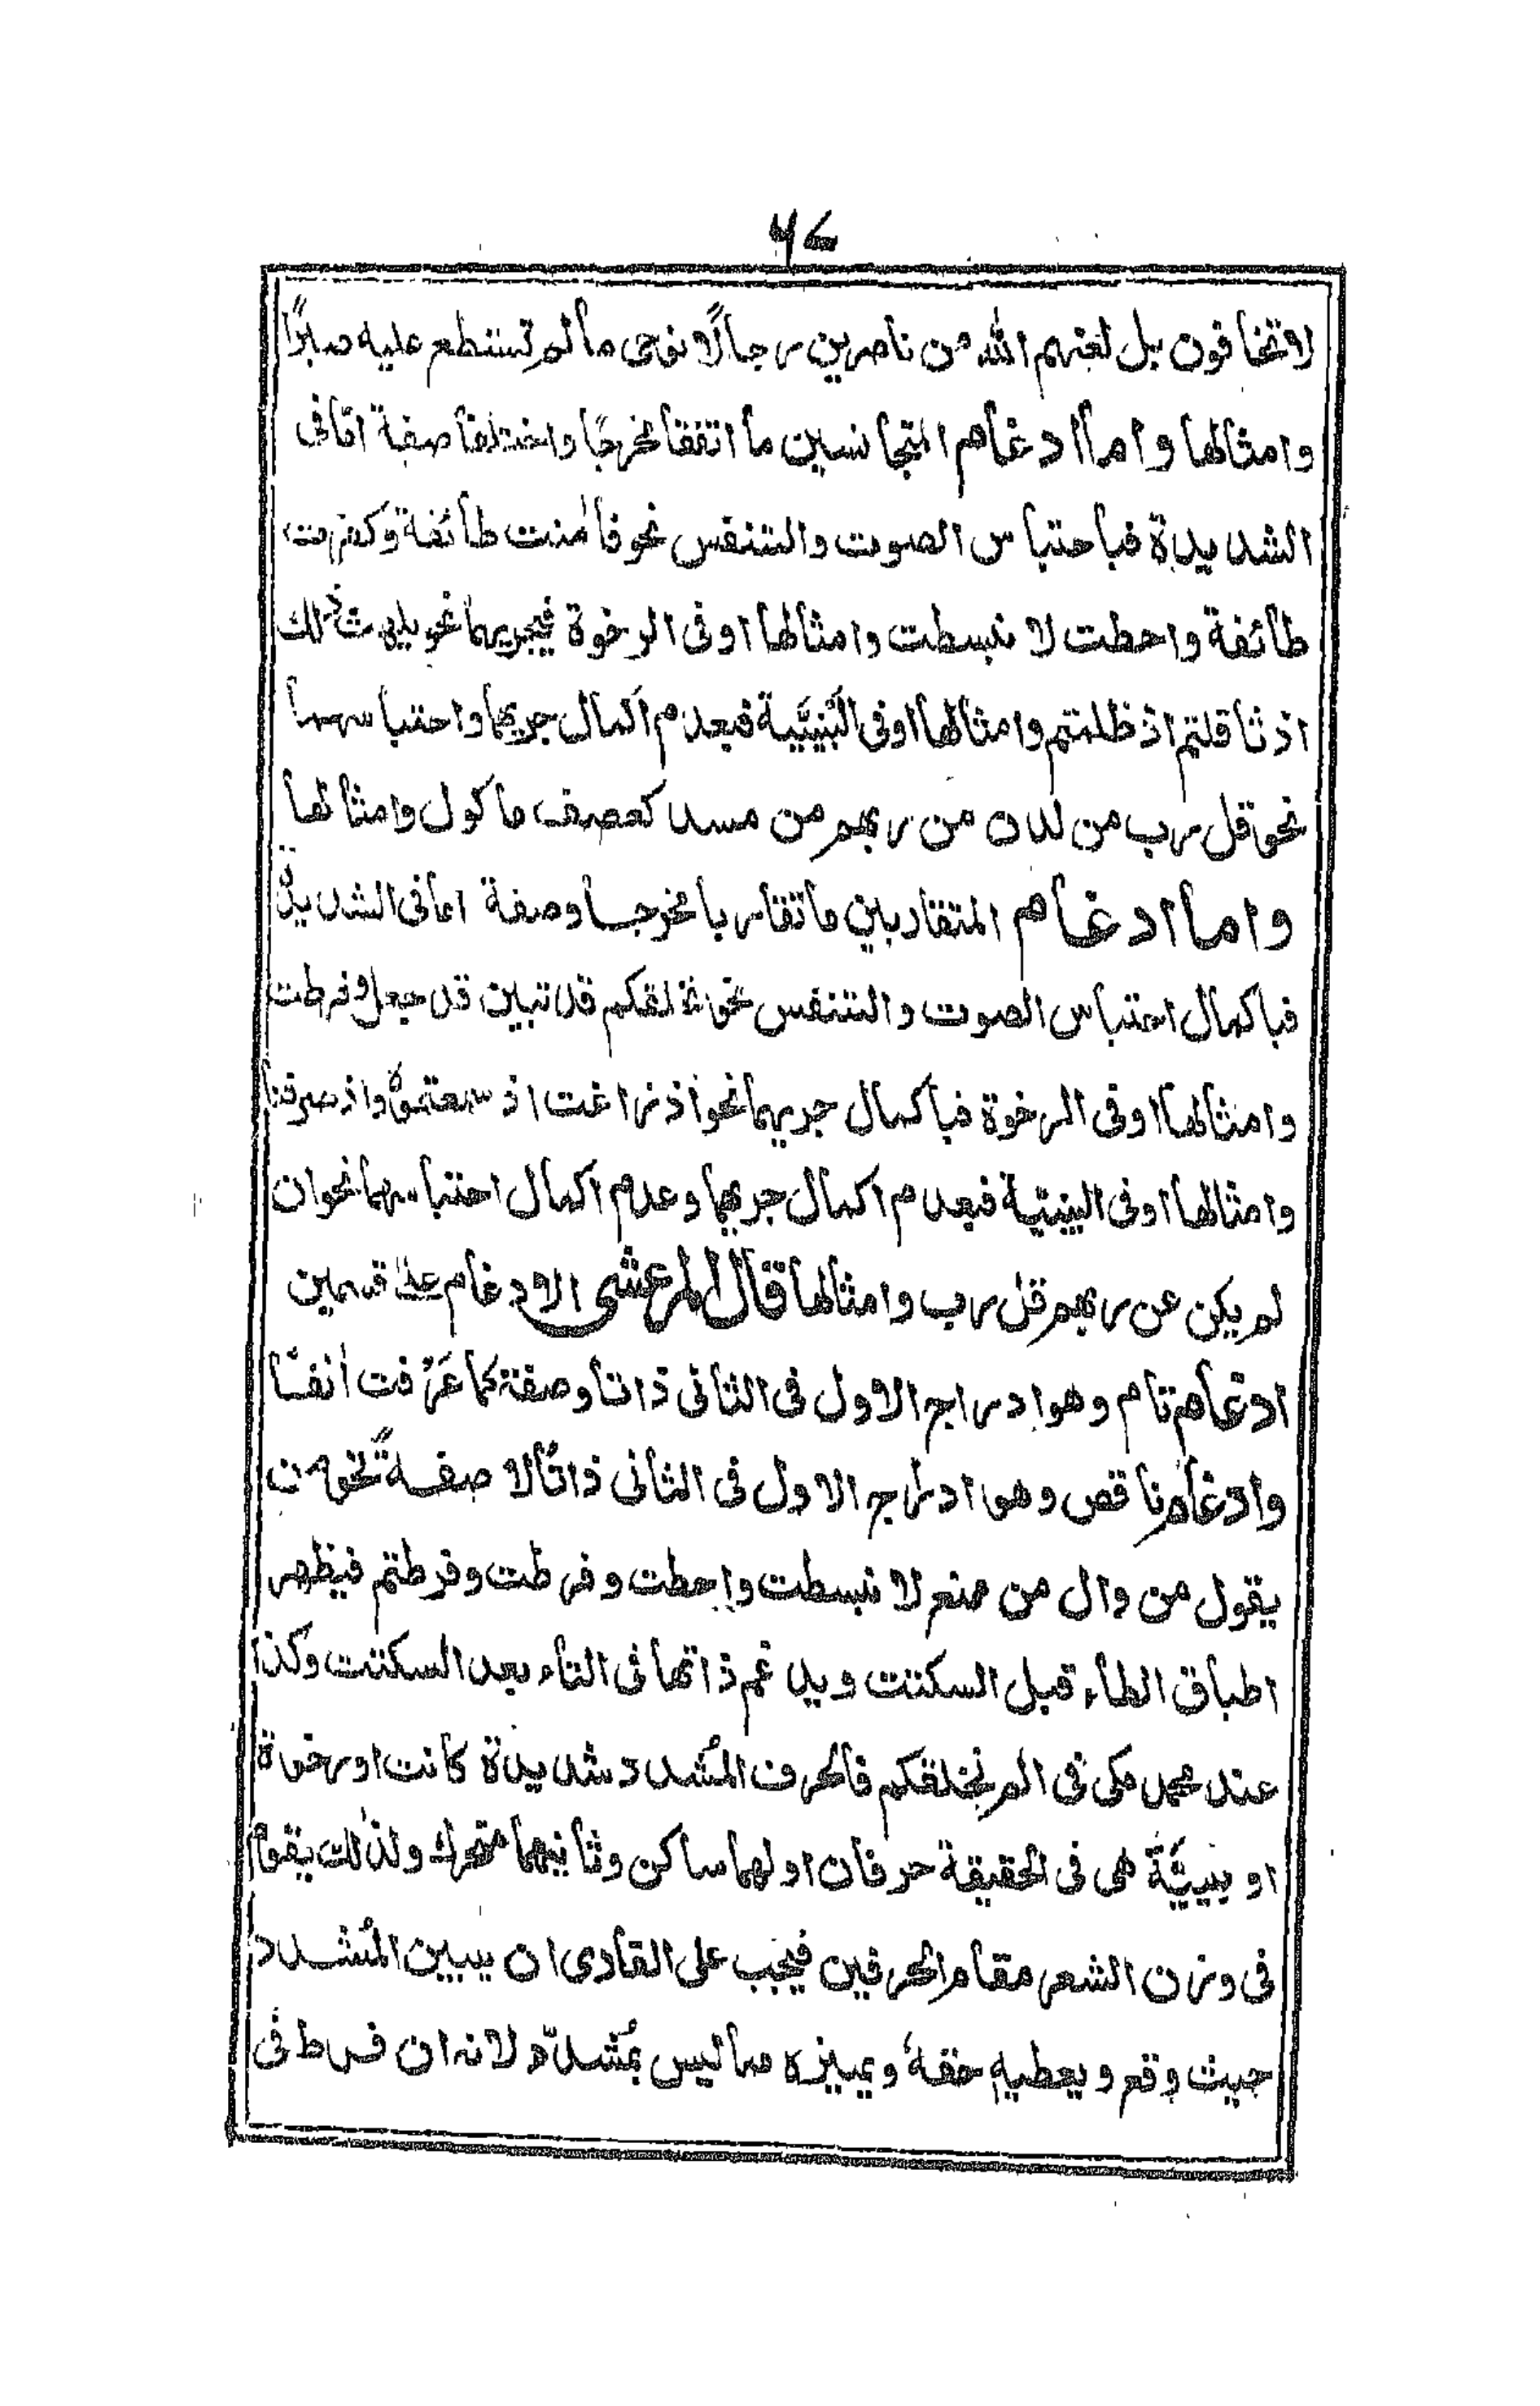 ٦٧
لا تخافون بل لعنهم الله من ناصرين رجالًا نوحى ما لم تستطع عليه صبرًا
وامثالها واما ادغام المتجانسين ما اتفقا مخرجًا واختلفا صفة امّا فى
الشديدة فباحتباس الصوت والتنفس نحو فاٰمنت طائفة وكفرت
طائفة واحطت لا نبسطت وامثالها او فى الرخوة فيجريهما نحو يلهث ذٰلك
اذ ثاقلتم اذ ظلمتم وامثالها او فى البَيْنِيَّة فبعدم اكمال جريهما واحتباسهما
نحو قل رب من لدن من ربهم من مسد كعصف ماكول وامثالها
واما ادغام المتقاربين ما تقاربا مخرجا وصفة اما فى الشديدة
فباكمال احتباس الصوت والتنفس نحو نخلقكم قد تبين قد جعل وفرطت
وامثالها او فى الرخوة فباكمال جريهما نحو اذ زاغت اذ سمعتموه واذ صرفنا
وامثالها او فى البينيّة فبعدم اكمال جريهما وعدم اكمال احتباسهما نحو ان
لم يكن عن ربهم قل رب وامثالها قال المرعشى الادغام علىٰ قسمين
ادغام تام وهو ادراج الاول فى الثانى ذاتا وصفة كما عَرَفت اٰنفًا
وادغام ناقص وهو ادراج الاول فى الثانى ذاتًا لا صفةً نحو من
يقول من وال من منع لا نبسطت واحطت وفرطت وفرطتم فيظهر
اطباق الطاء قبل السكتت ويدغم ذاتها فى التاء بعد السكتت وكذا
عند محمد مكى فى الم نخلقكم فالحرف المُشدد شديدة كانت او رخوة
او بينيَّة هى فى الحقيقة حرفان اولهما ساكن وثانيهما متحرك ولذٰلك يقوم
فى وزن الشعر مقام الحرفين فيجب على القارى ان يبين المُشدد
حيث وقع ويعطيه حقهٗ ويميزه مما ليس بمُشدّد لانه ان فرط فى